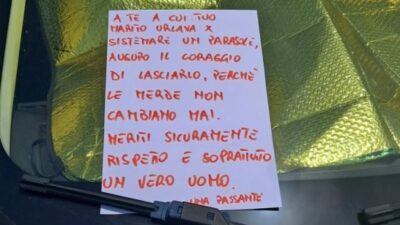 A TE A CUI TUO
MARITO URLAVA X
SISTEMARE UM PARASOLE,
AUGURO IL CORAGGIO
DI LASCIARLO, PERCHÈ
LE MERDE NON
CAMBIANO MAI.
MERITI SICURAMENTE
RISPETO E SOPRATUTTO
UN VERO UOMO.
UNA PASSANTE